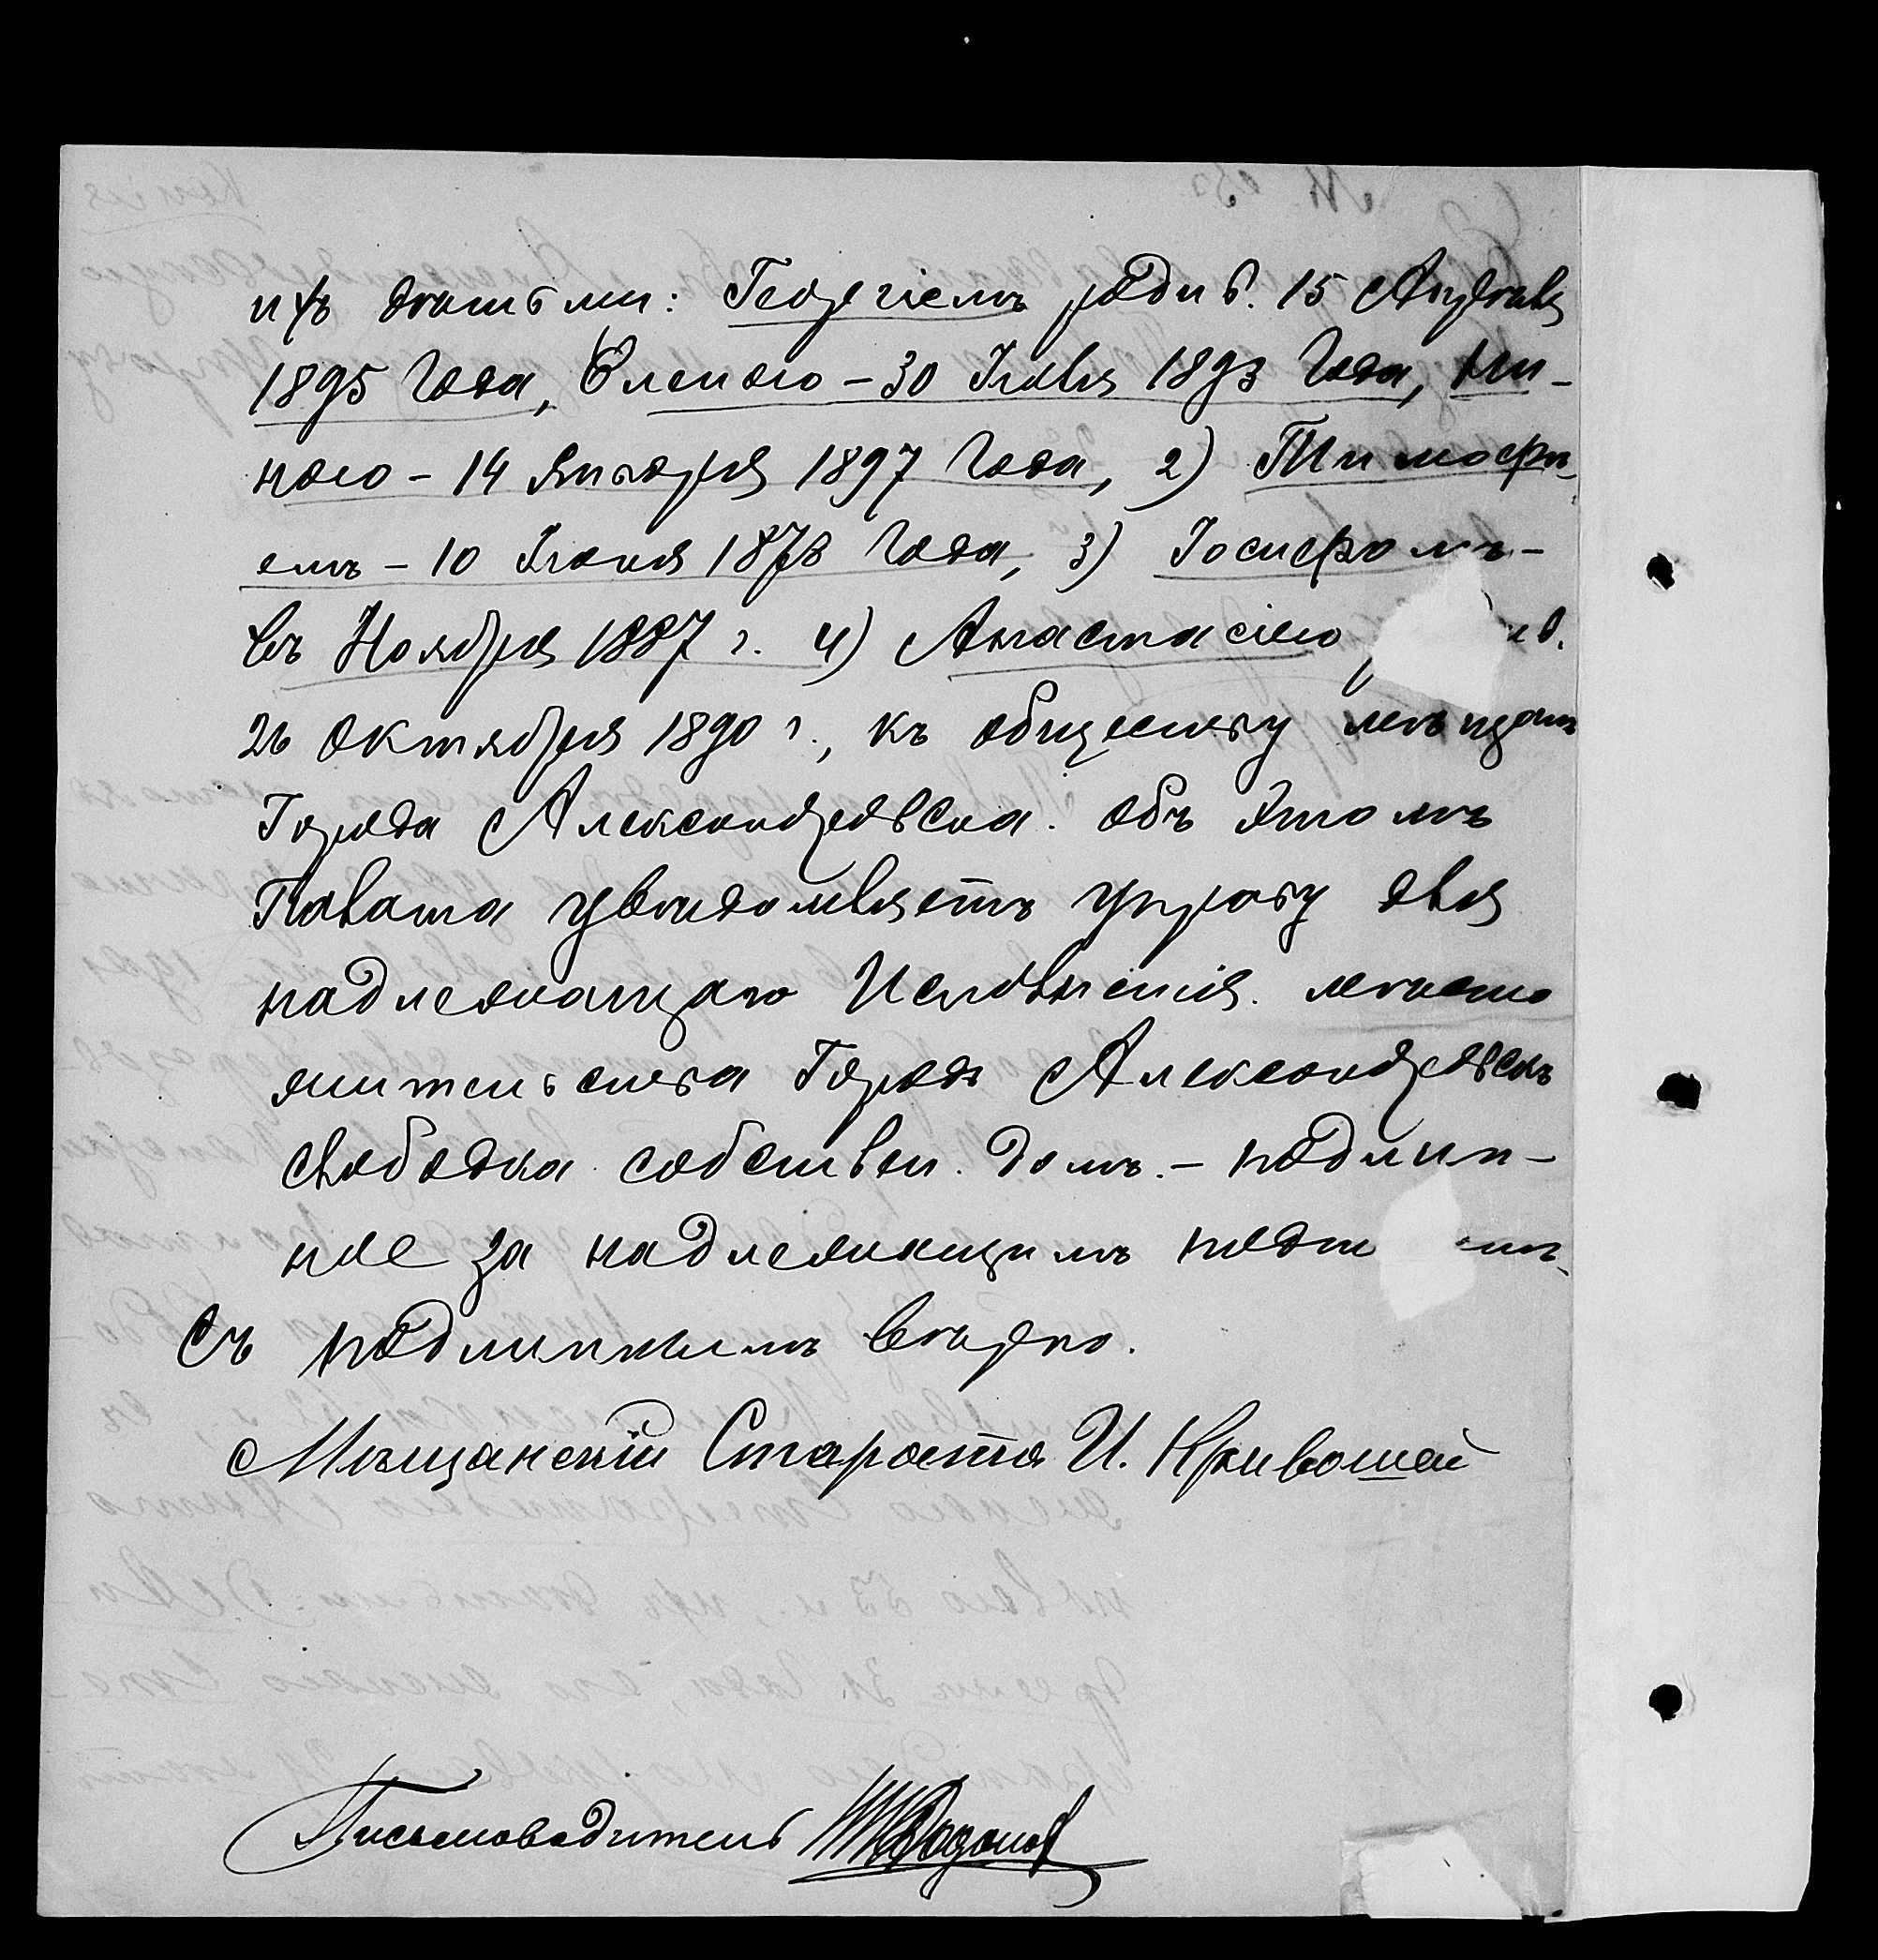 ихъ дѣтьми: Георгіемъ родив. 15 Апрѣля
1895 Года, Еленою – 30 Іюля 1893 Года, Ни-
ною – 14 Января 1897 Года, 2) Тимофѣ-
емъ – 10 Іюня 1878 Года, 3) Іосифомъ –
въ Ноября 1887 г. 4) Анастасіею
26 Октября 1890 г., къ обществу мѣщанъ
Города Александровска. Объ этомъ
Палата увѣдомляетъ управу для
надлежащаго Исполненія. мѣсто
жительства Городъ Александровскъ
слободка собствен. домъ. – подлин-
ное за надлежащимъ
Съ подлиннымъ вѣрно.
Мѣщанскій Староста И. Кривошей
Письмоводитель